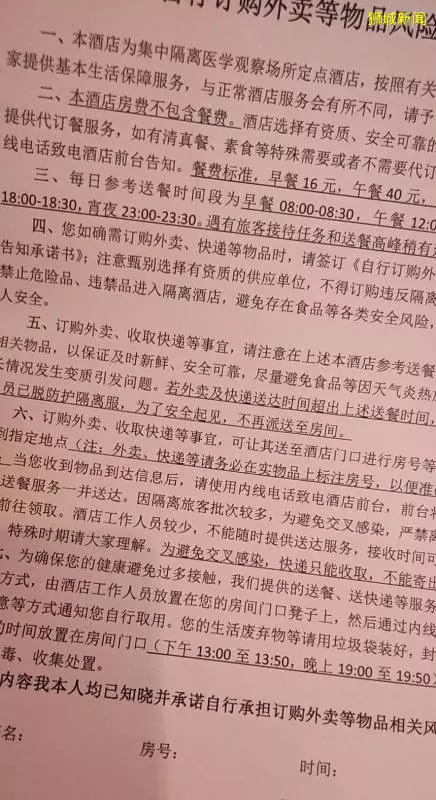 狮城新闻
自行订购外卖等物品风险
一、本酒店为集中隔离医学观察场所定点酒店，按照有关
家提供基本生活保障服务，与正常酒店服务会有所不同，请予
二、本酒店房费不包含餐费。酒店选择有资质、安全可靠的
提供代订餐服务，如有清真餐、素食等特殊需要或者不需要代订
线电话致电酒店前台告知。餐费标准，早餐 16 元，午餐 40 元，
三、每日参考送餐时间段为早餐 08:00-08:30，午餐 12:0
18:00-18:30，宵夜 23:00-23:30。遇有旅客接待任务和送餐高峰稍有
四、您如确需订购外卖、快递等物品时，请签订《自行订购外
告知承诺书》；注意甄别选择有资质的供应单位，不得订购违反隔离
禁止危险品、违禁品进入隔离酒店，避免存在食品等各类安全风险，
人安全。
五、订购外卖、收取快递等事宜，请注意在上述本酒店参考送餐
相关物品，以保证及时新鲜、安全可靠，尽量避免食品等因天气炎热
情况发生变质引发问题。若外卖及快递送达时间超出上述送餐时间，
员已脱防护隔离服，为了安全起见，不再派送至房间。
六、订购外卖、收取快递等事宜，可让其送至酒店门口进行房号等
到指定地点（注：外卖、快递等请务必在实物品上标注房号，以便准
。当您收到物品到达信息后，请使用内线电话致电酒店前台，前台将
送餐服务一并送达。因隔离旅客批次较多，为避免交叉感染，严禁离
前往领取。酒店工作人员较少，不能随时提供送达服务，接收时间可
特殊时期请大家理解。为避免交叉感染，快递只能收取，不能寄出
、为确保您的健康避免过多接触，我们提供的送餐、送快递等服务
方式，由酒店工作人员放置在您的房间门口凳子上，然后通过内线
意等方式通知您自行取用。您的生活废弃物等请用垃圾袋装好，封
的时间放置在房间门口（下午 13:00 至 13:50，晚上 19:00 至 19:50）
毒、收集处置。
内容我本人均已知晓并承诺自行承担订购外卖等物品相关风
名：
房号：
时间：